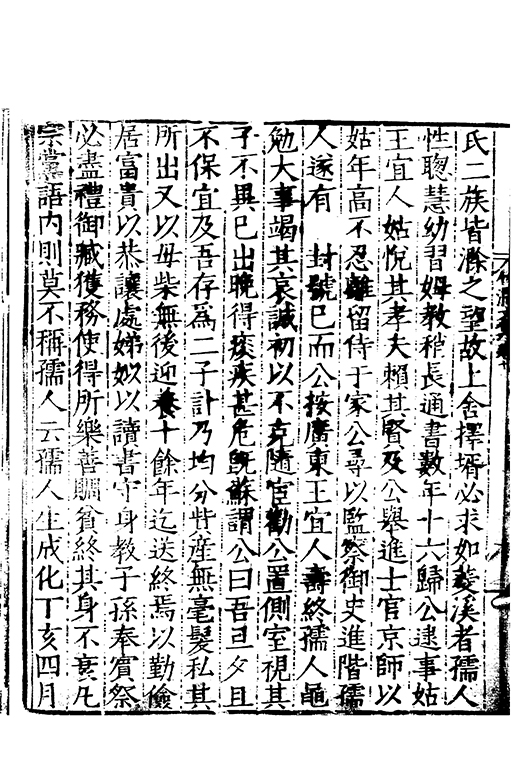 氏二族皆滁之望故上舍擇壻必求如菱溪者孺人
性聰慧幼習姆教稍長通書數年十六歸公逮事姑
王宜人姑悅其孝夫賴其賢及公舉進士官京師以
姑年高不忍離留侍于家公尋以監察御史進階孺
人遂有 封號已而公按廣東王宜人壽終孺人黽
勉大事竭其哀誠初以不克隨宦勸公置側室視其
子不異已出晚得痰疾甚危旣蘇謂公曰吾旦夕且
不保宜及吾存為二子計乃均分貲産無毫髮私其
所出又以母柴無後迎養十餘年迄送終焉以勤儉
居富貴以恭讓處娣姒以讀書守身教子孫奉賓祭
必盡禮御臧獲務使得所樂善賙貧終其身不衰凡
宗黨語內則莫不稱孺人云孺人生成化丁亥四月